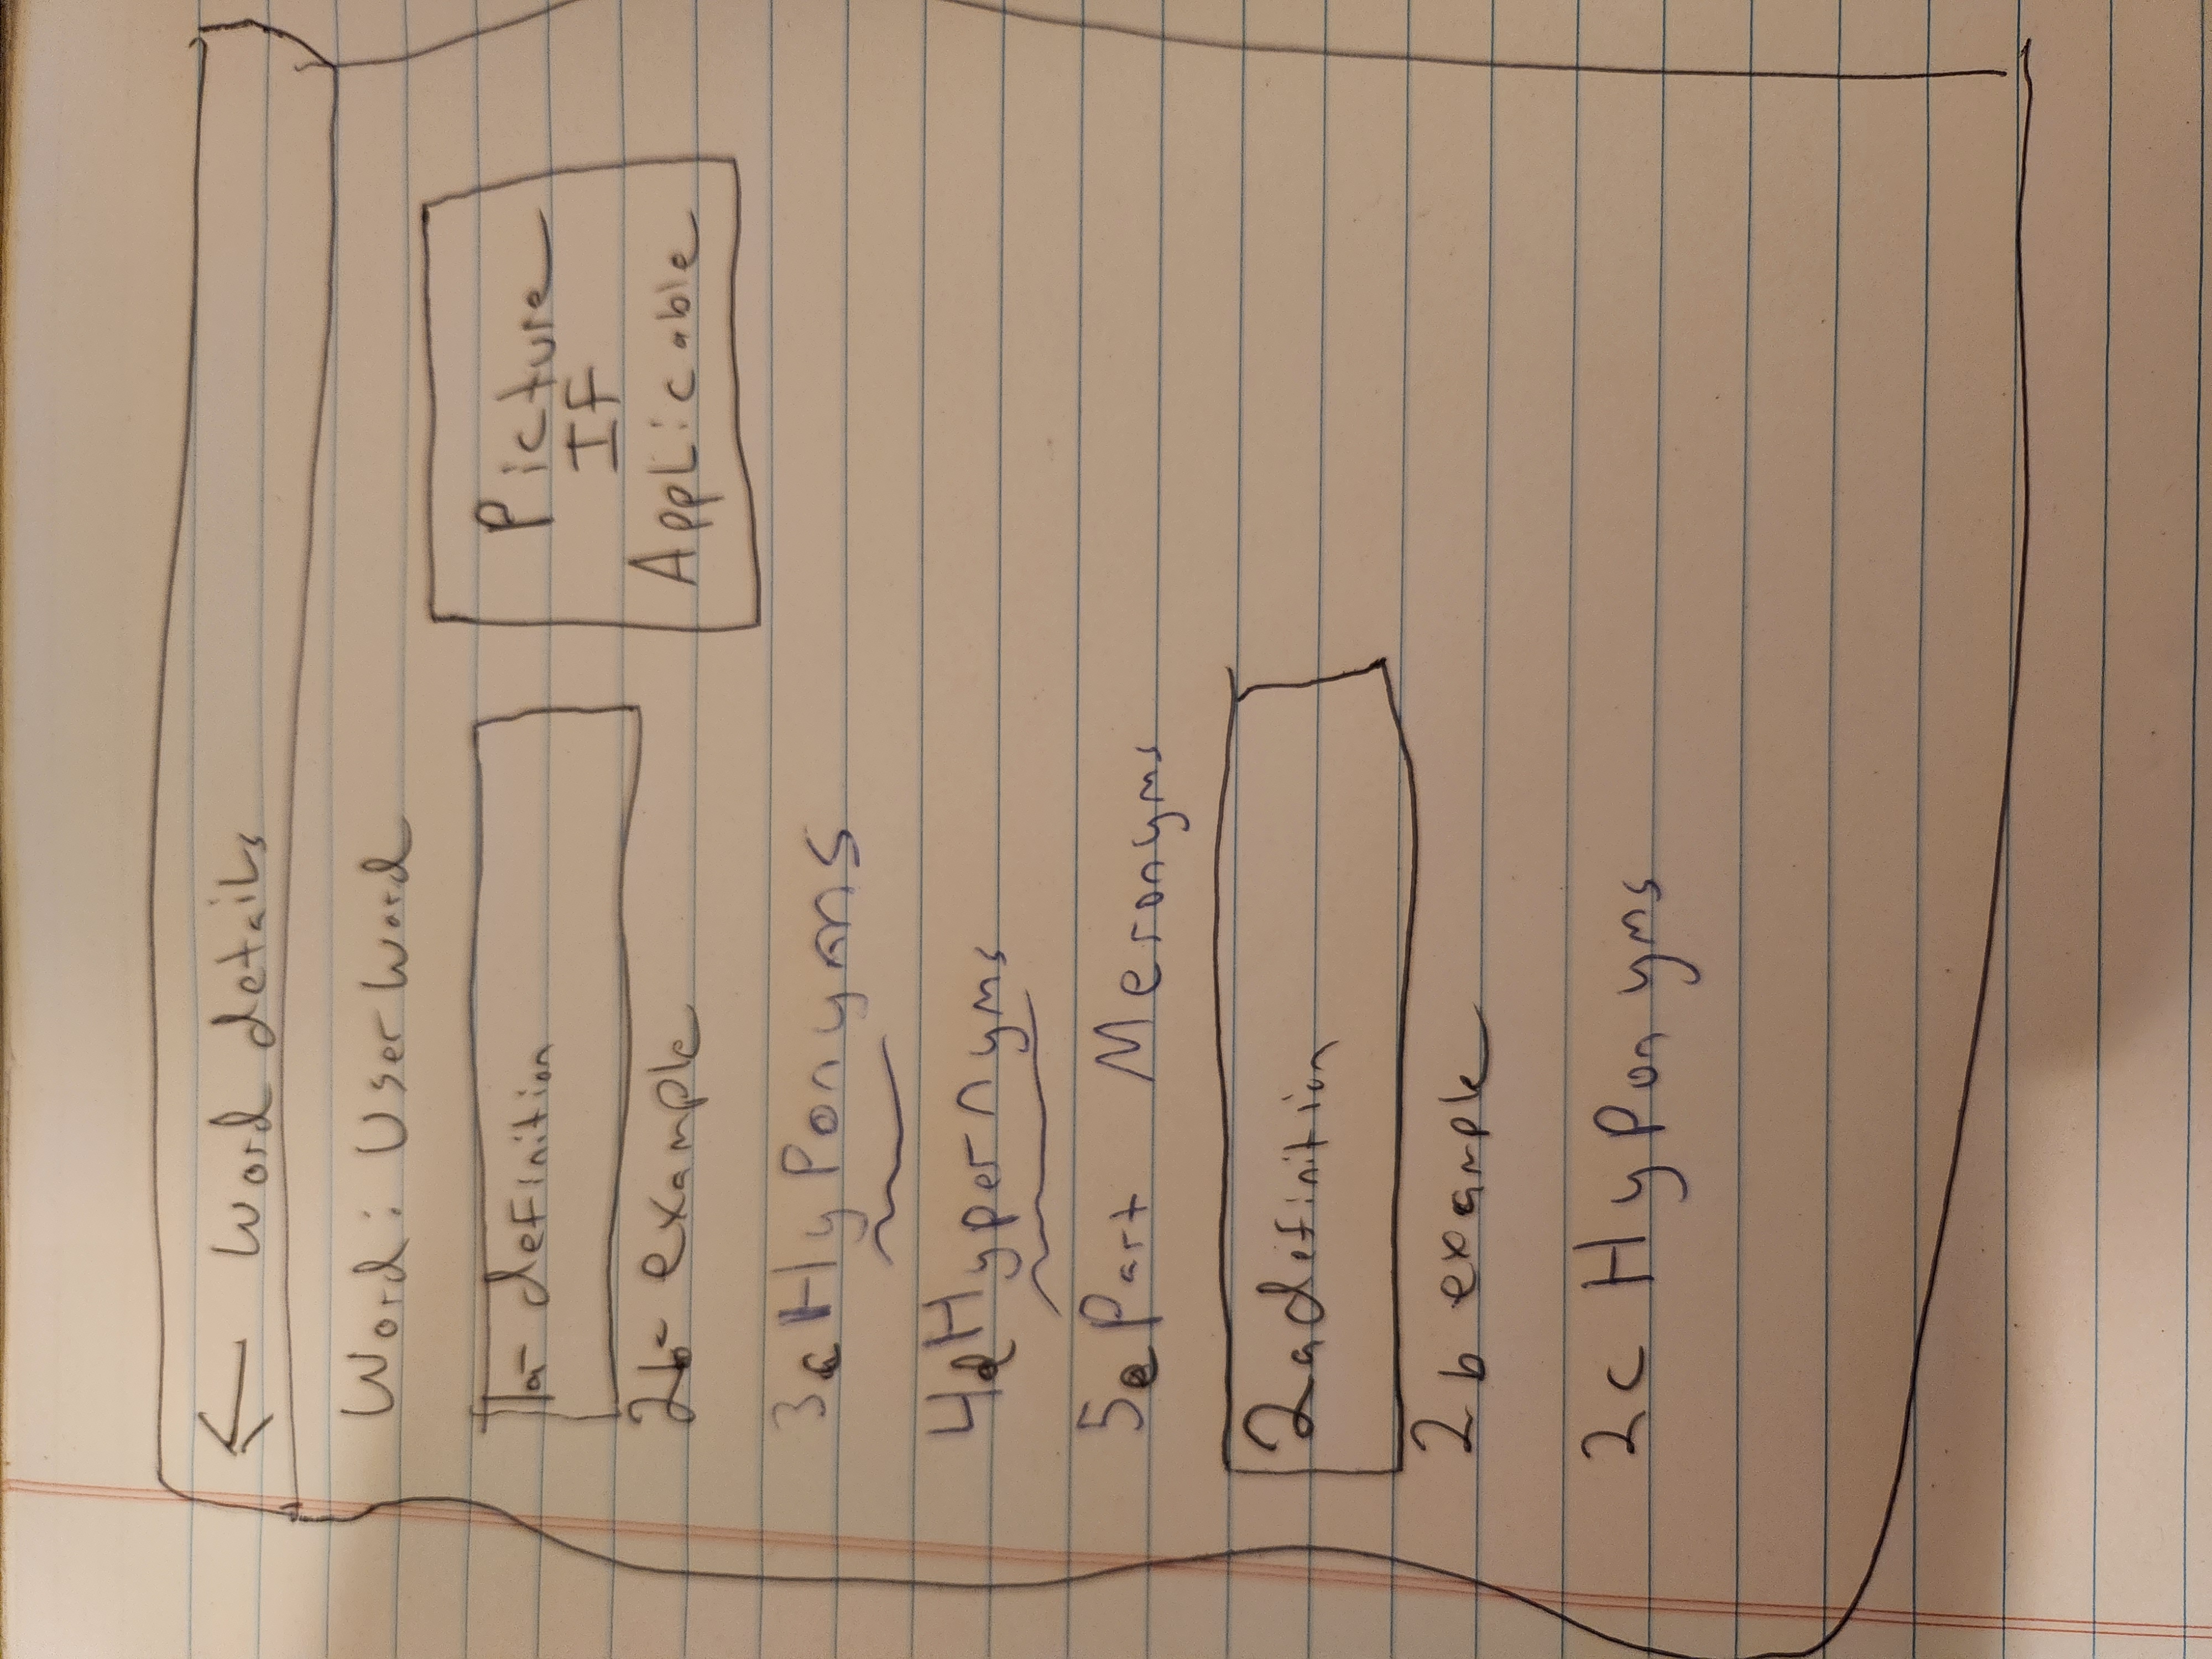 ← Word details
Word: User Word
1a- definition
2b- example
Picture
IF
Applicable
3c Hyponyms
4d Hypernyms
5e Part Meronyms
2a definition
2b example
2c Hyponyms